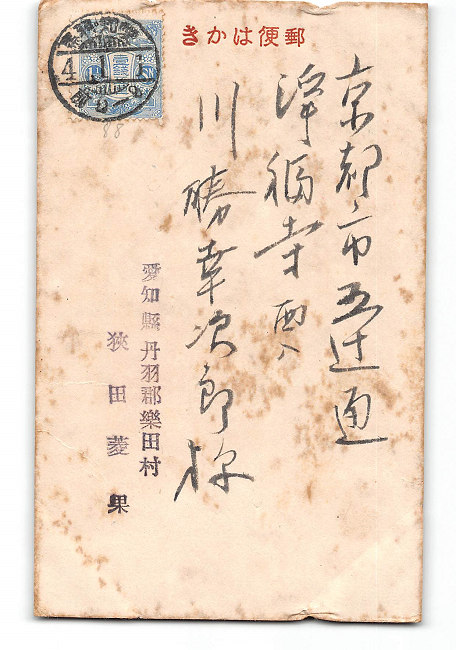 郵便はかき
京都市五辻通
浄福寺西入
川勝幸次郎様
愛知縣丹羽郡樂田村
狹田菱果
4.1.1
88